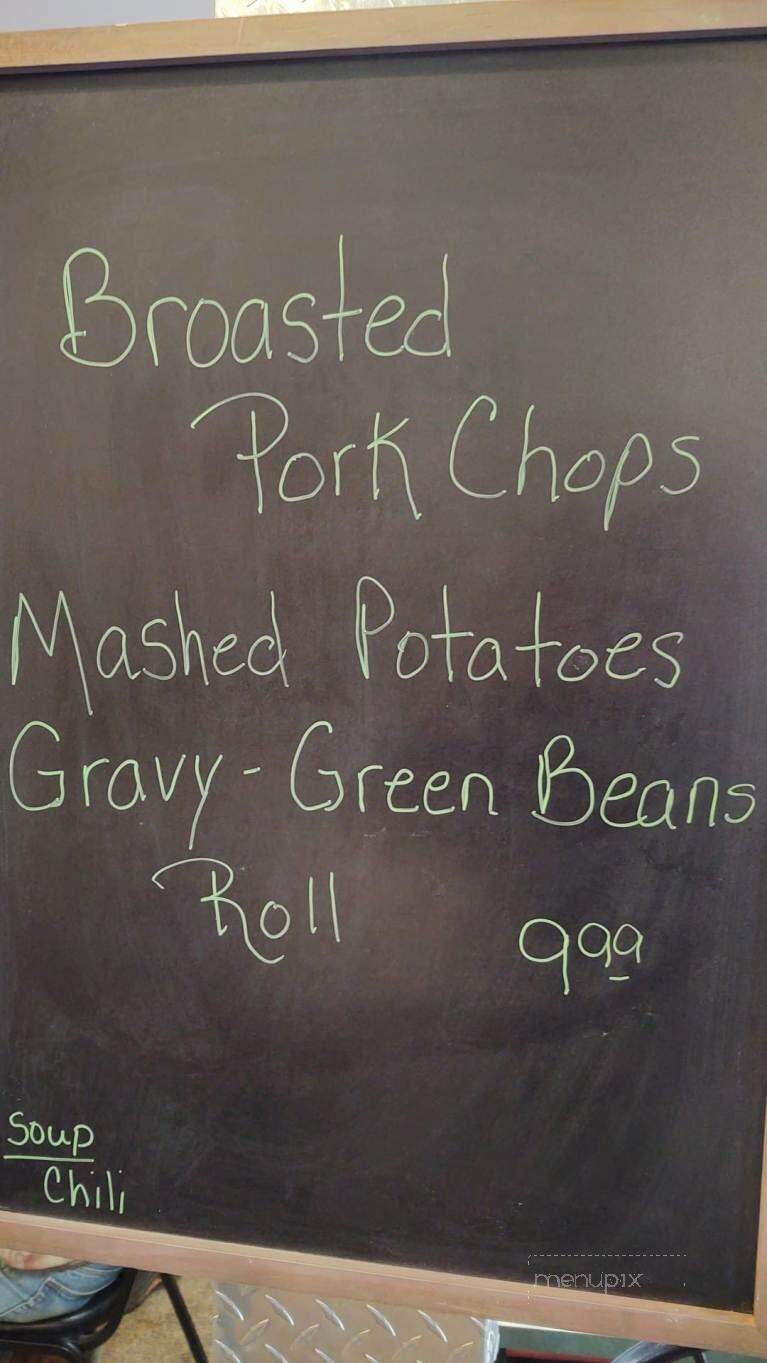 Broasted
Pork Chops
Mashed Potatoes
Gravy - Green Beans
Roll 999
Soup
Chili
menupix